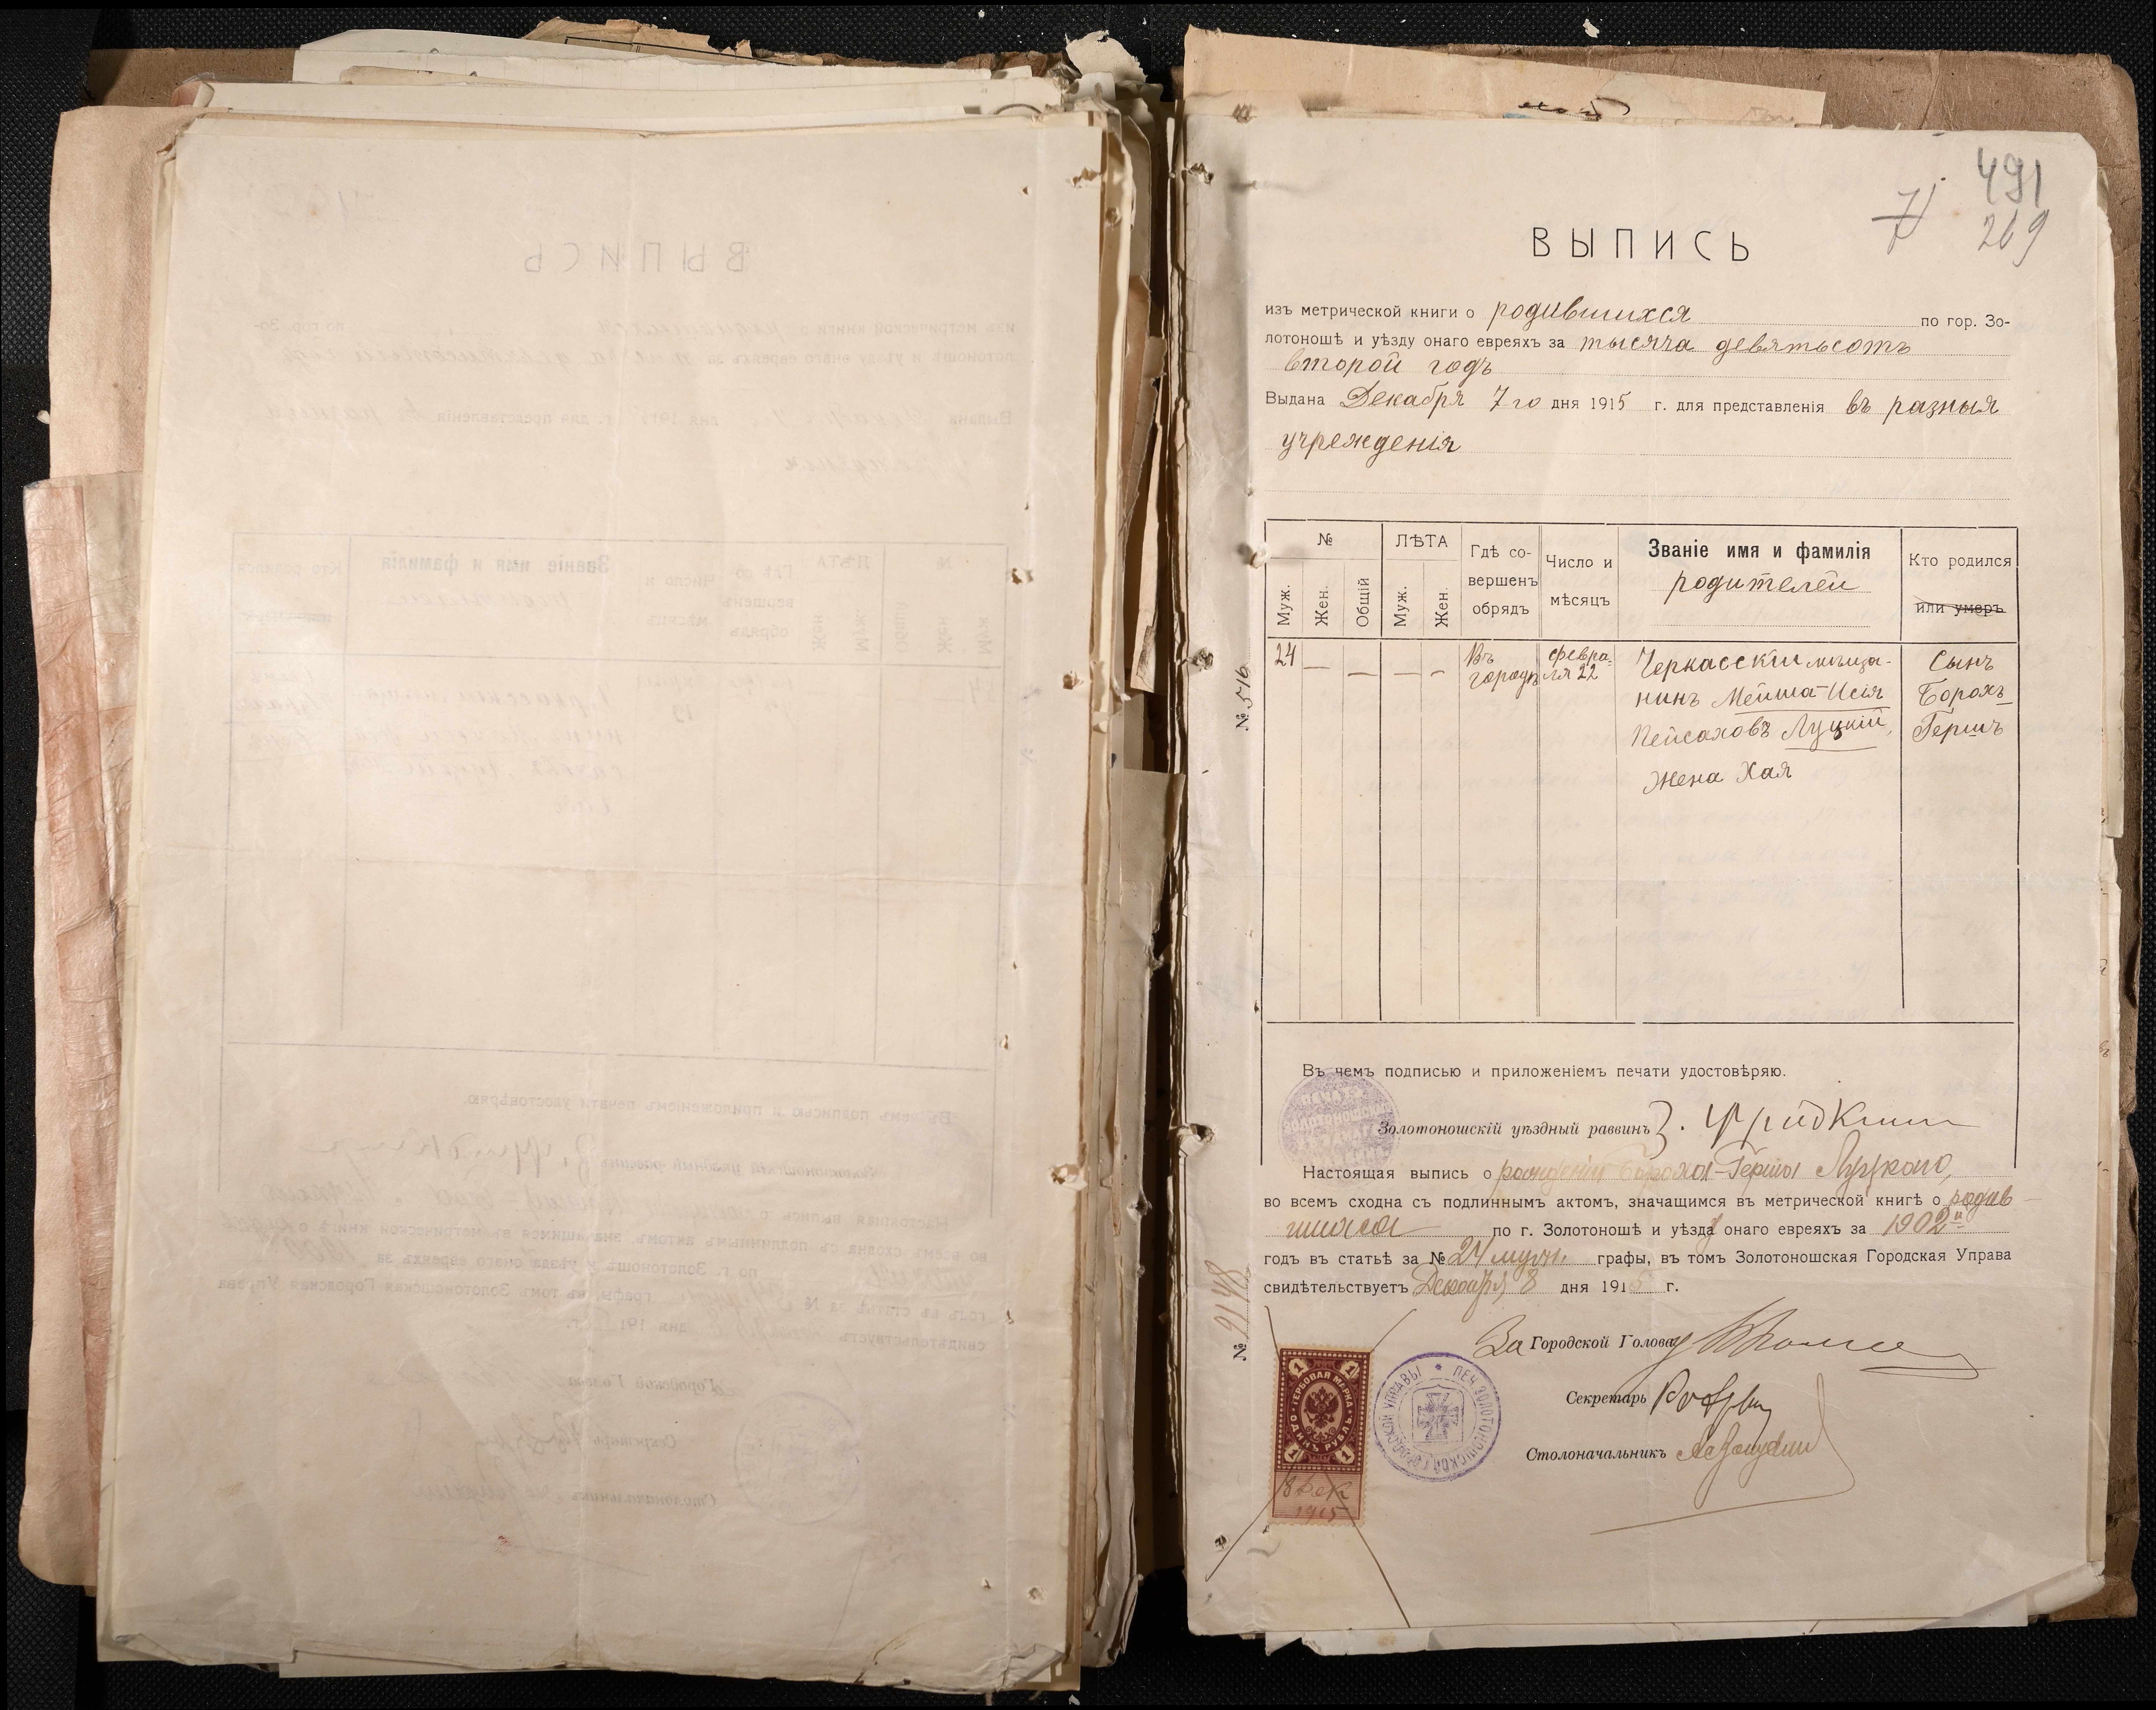 491
269
ВЫПИСЬ
изъ метрической книги о родившихся по гор. Зо-
лотоношѣ и уѣзду онаго евреяхъ за тысяча девятьсотъ
второй годъ
Выдана Декабря 7-го дня 1915 г. для представленія въ разныя
учрежденія
№ ЛѢТА Гдѣ со- вершенъ обрядъ Число и мѣсяцъ Званіе имя и фамилія родителей Кто родился или умеръ
Муж. Жен. Общій Муж. Жен.
24 — — — — Въ городѣ Февра- ля 22
Черкасскій мѣща-
нинъ Мейша-Исія
Пейсаховъ Луцкій,
жена Хая
Сынъ
Борохъ
Гершъ
№ 516
Въ чемъ подписью и приложеніемъ печати удостовѣряю.
Золотоношскій уѣздный раввинъ З. Фридкин
Настоящая выпись о рожденіи Бороха-Герша Луцкаго,
во всемъ сходна съ подлиннымъ актомъ, значащимся въ метрической книгѣ о родив-
шихся по г. Золотоношѣ и уѣзда онаго евреяхъ за 1902й
годъ въ статьѣ за № 24 муж. графы, въ томъ Золотоношская Городская Управа
свидѣтельствуетъ Декабря 8 дня 1915 г.
№ 2148
За Городской Голова
Секретарь
Столоначальникъ
ГЕРБОВАЯ МАРКА ОДИНЪ РУБЛЬ
1 1 1 1
8 Дек
1915
ПЕЧ. ЗОЛОТОНОШСКОЙ ГОРОДСКОЙ УПРАВЫ